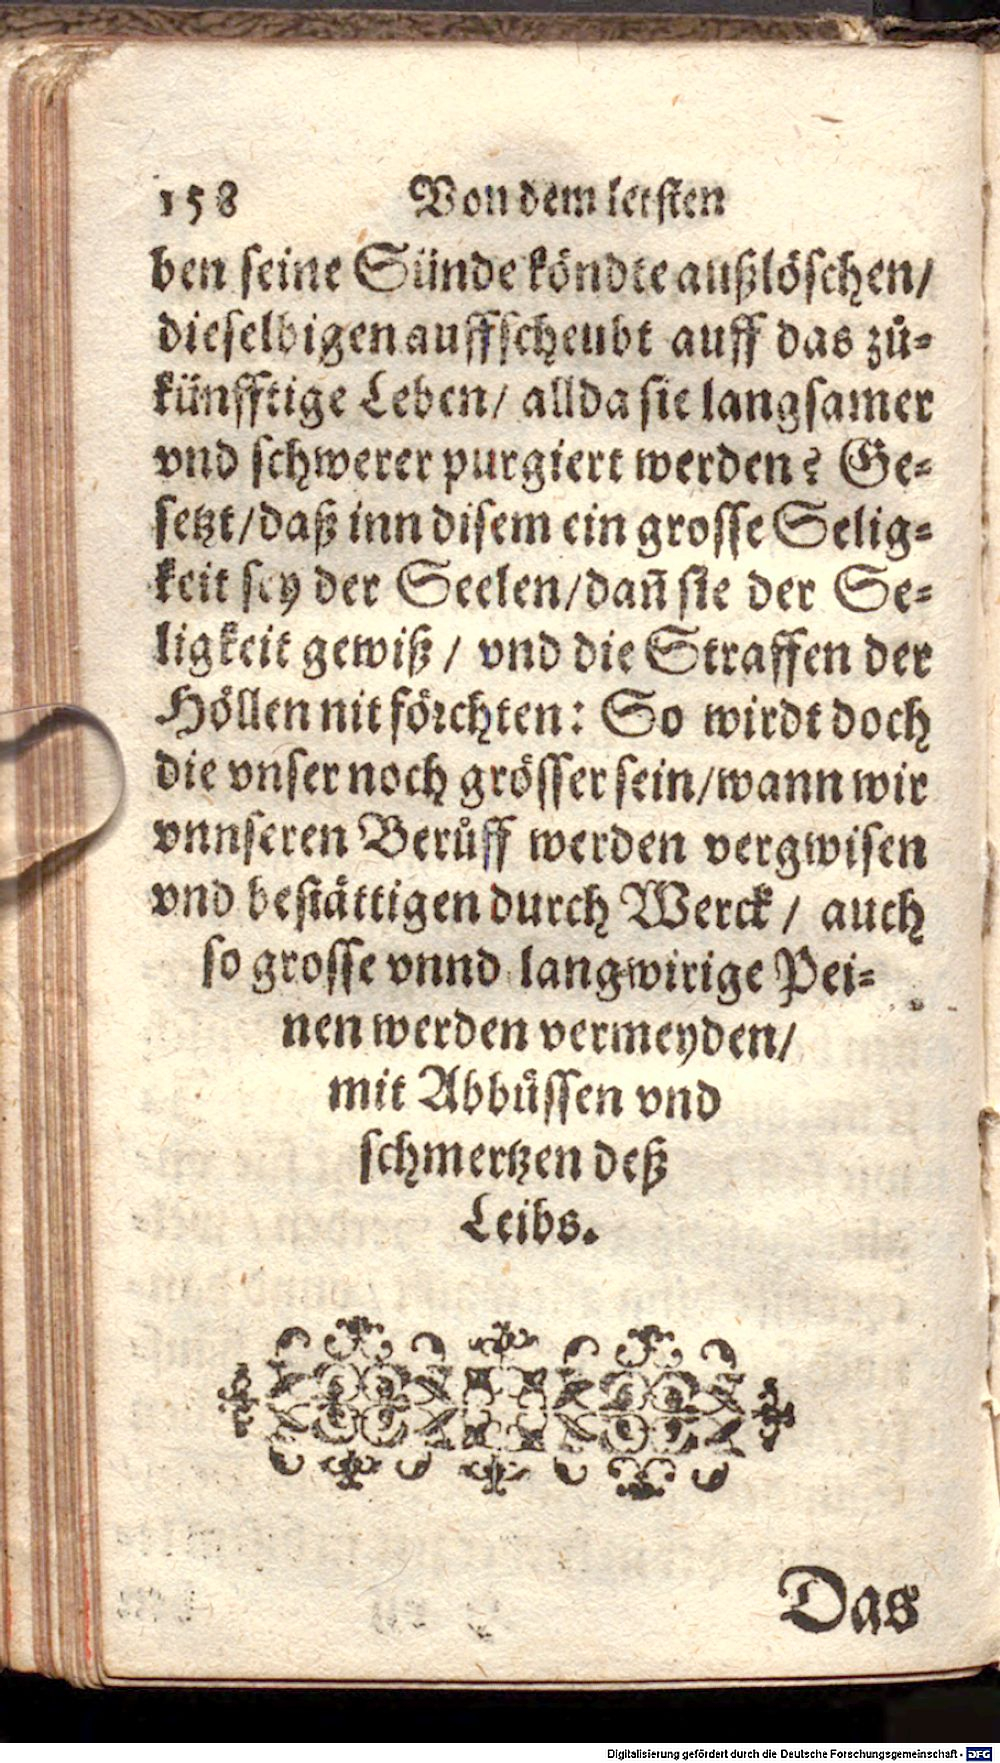 158 Von dem letsten
ben seine Sünde köndte außlöschen/
dieselbigen auffscheubt auff das zů-
künfftige Leben/ allda sie langsamer
vnd schwerer purgiert werden? Ge-
setzt/daß inn disem ein grosse Selig-
keit sey der Seelen/dañ sie der Se-
ligkeit gewiß/ vnd die Straffen der
Höllen nit förchten: So wirdt doch
die vnser noch grösser sein/wann wir
vnnseren Berůff werden vergwisen
vnd bestättigen durch Werck/ auch
so grosse vnnd langwirige Pei-
nen werden vermeyden/
mit Abbüssen vnd
schmertzen deß
Leibs.
Das
Digitalisierung gefördert durch die Deutsche Forschungsgemeinschaft - DFG